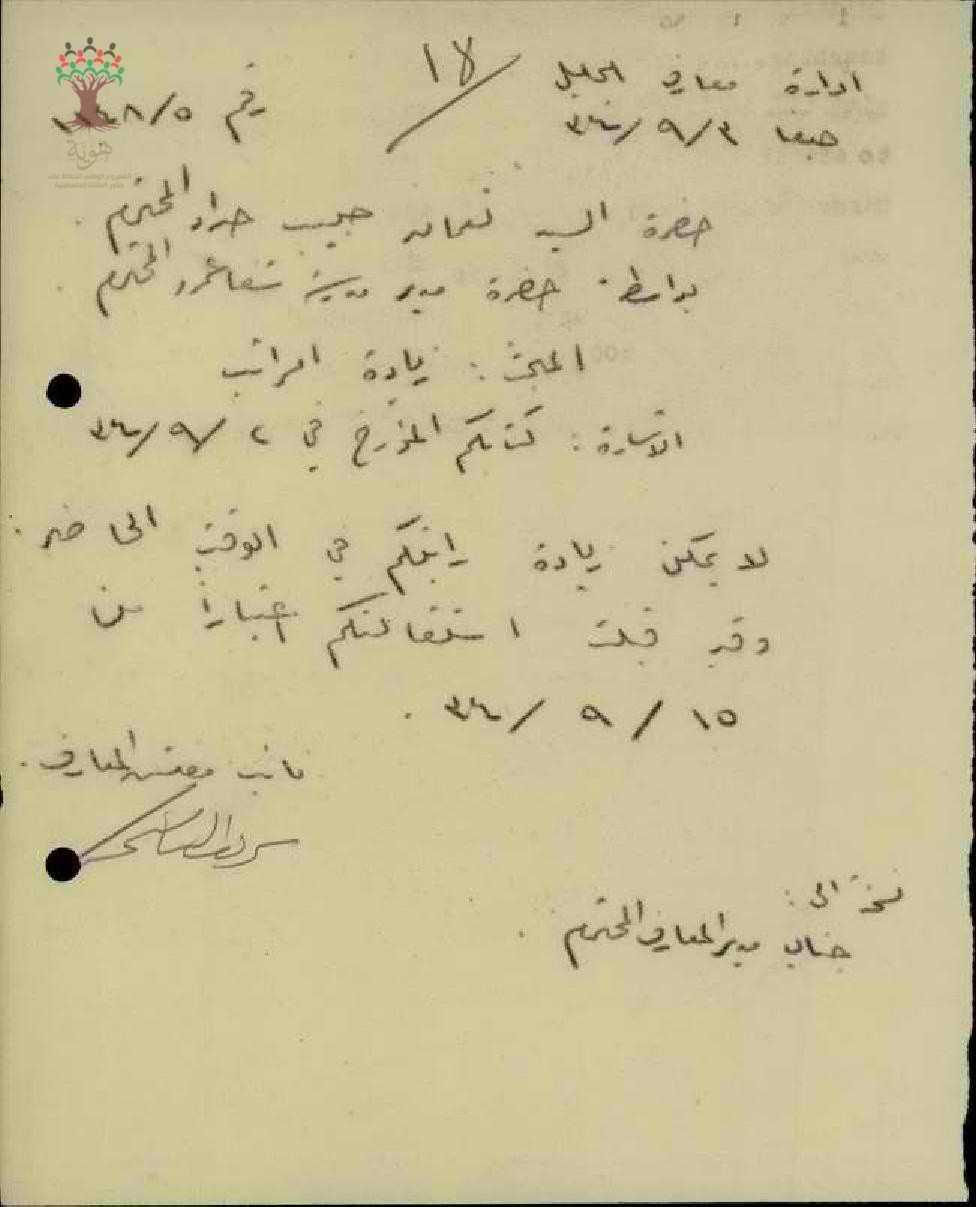 ادارة معارف الجليل
١٨
رقم
حيفا ٣/٩/٣٤
حضرة السيد نعمان حبيب حداد المحترم.
بواسطة حضرة مدير مدرسة شفاعمرو المحترم.
المبحث: زيادة الراتب
الاشارة: كتابكم المؤرخ في ٢/٩/٣٤
لا يمكن زيادة راتبكم في الوقت الحاضر.
وقد قبلت استقالتكم اعتباراً من
١٥/٩/٣٤.
نائب مفتش المعارف.
نسخة الى:
جناب مدير المعارف المحترم.
هوية